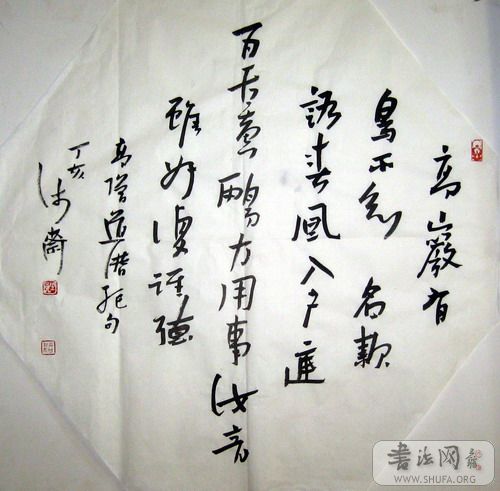 高巖有
鳥不知名款
語春風入户庭
百舌黄鸝方用事汝音
雖好復誰聽
高僧道潛絕句
丁亥
書法网
WWW.SHUFA.ORG